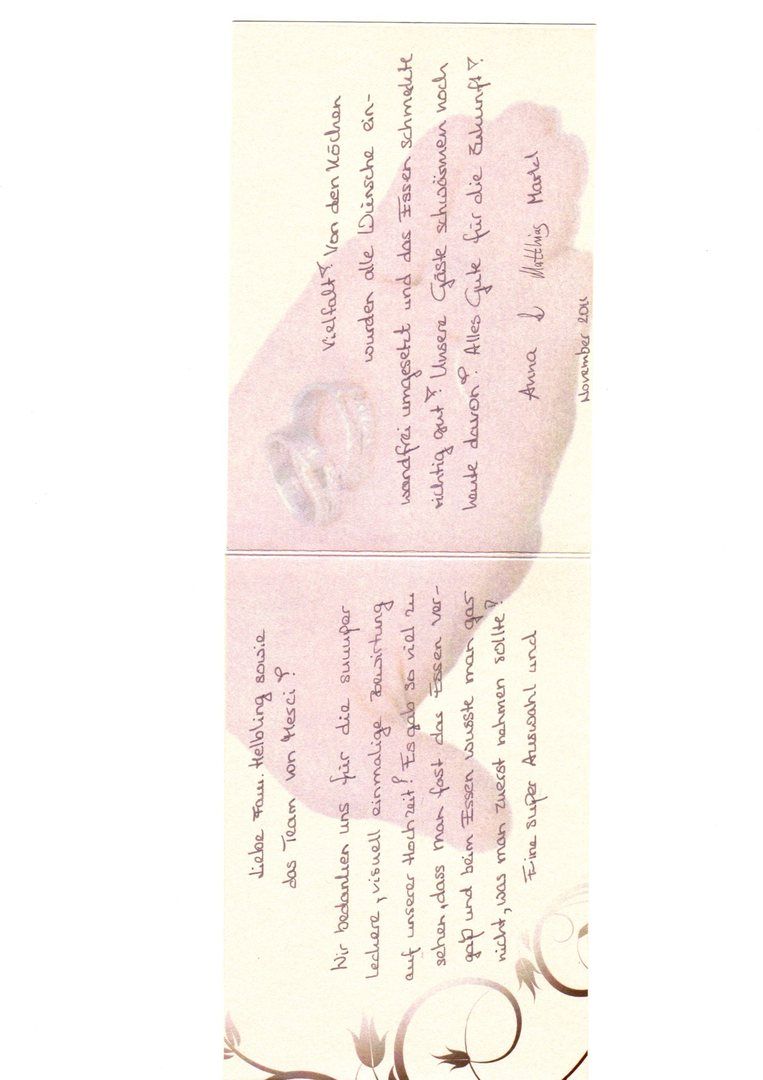 Liebe Fam. Helbling sowie
das Team von Merci!
Wir bedanken uns für die suuuper
leckere, visuell einmalige Bewirtung
auf unserer Hochzeit! Es gab so viel zu
sehen, dass man fast das Essen ver-
gaß und beim Essen wusste man gar
nicht, was man zuerst nehmen sollte!
Eine super Auswahl und
Vielfalt! Von den Köchen
wurden alle Wünsche ein-
wandfrei umgesetzt und das Essen schmeckte
richtig gut! Unsere Gäste schwärmen noch
heute davon! Alles Gute für die Zukunft!
Anna & Matthias Markl
November 2011